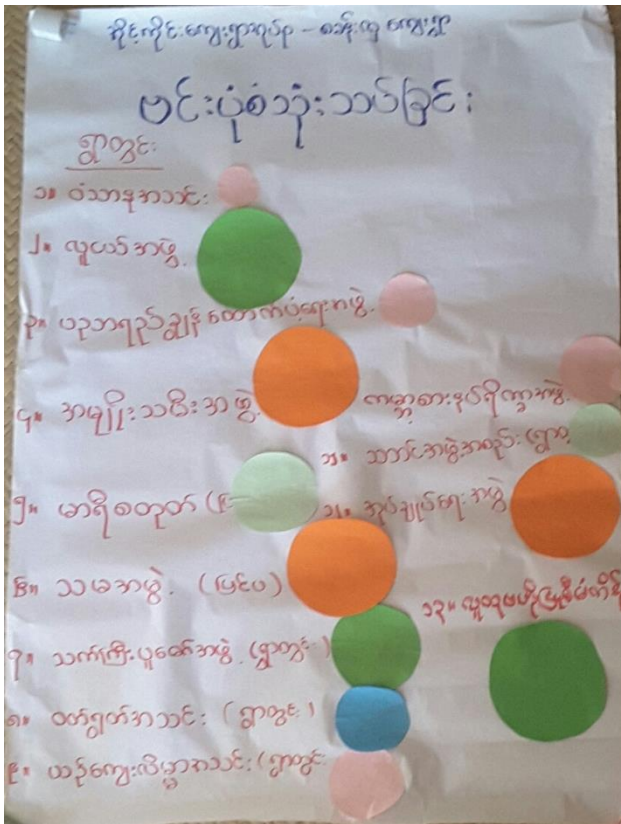 ဗင်းပုံစံသုံးသပ်ခြင်း
ရွာတွင်း
၁။ ဝံသာနုအသင်း
၂။ လူငယ်အဖွဲ့
၃။ ပညာရည်ချွန် ထောက်ပံ့ရေးအဖွဲ့
၄။ အမျိုးသမီးအဖွဲ့
၅။ မာရီစတုတ်
၆။ သမအဖွဲ့ (ပြင်ပ)
၇။ သက်ကြီးပူဇော်အဖွဲ့ (ရွာတွင်း)
၈။ ဝတ်ရွတ်အသင်း (ရွာတွင်း)
၉။ ယဉ်ကျေးလိမ္မာအသင်း (ရွာတွင်း
ကမ္ဘာ့စားနပ်ရိက္ခာအဖွဲ့
၁၁။ သာသင်အဖွဲ့အစည်း (ရွာ
၁၂။ အုပ်ချုပ်ရေးအဖွဲ့
၁၃။ လူထုဗဟိုပြု